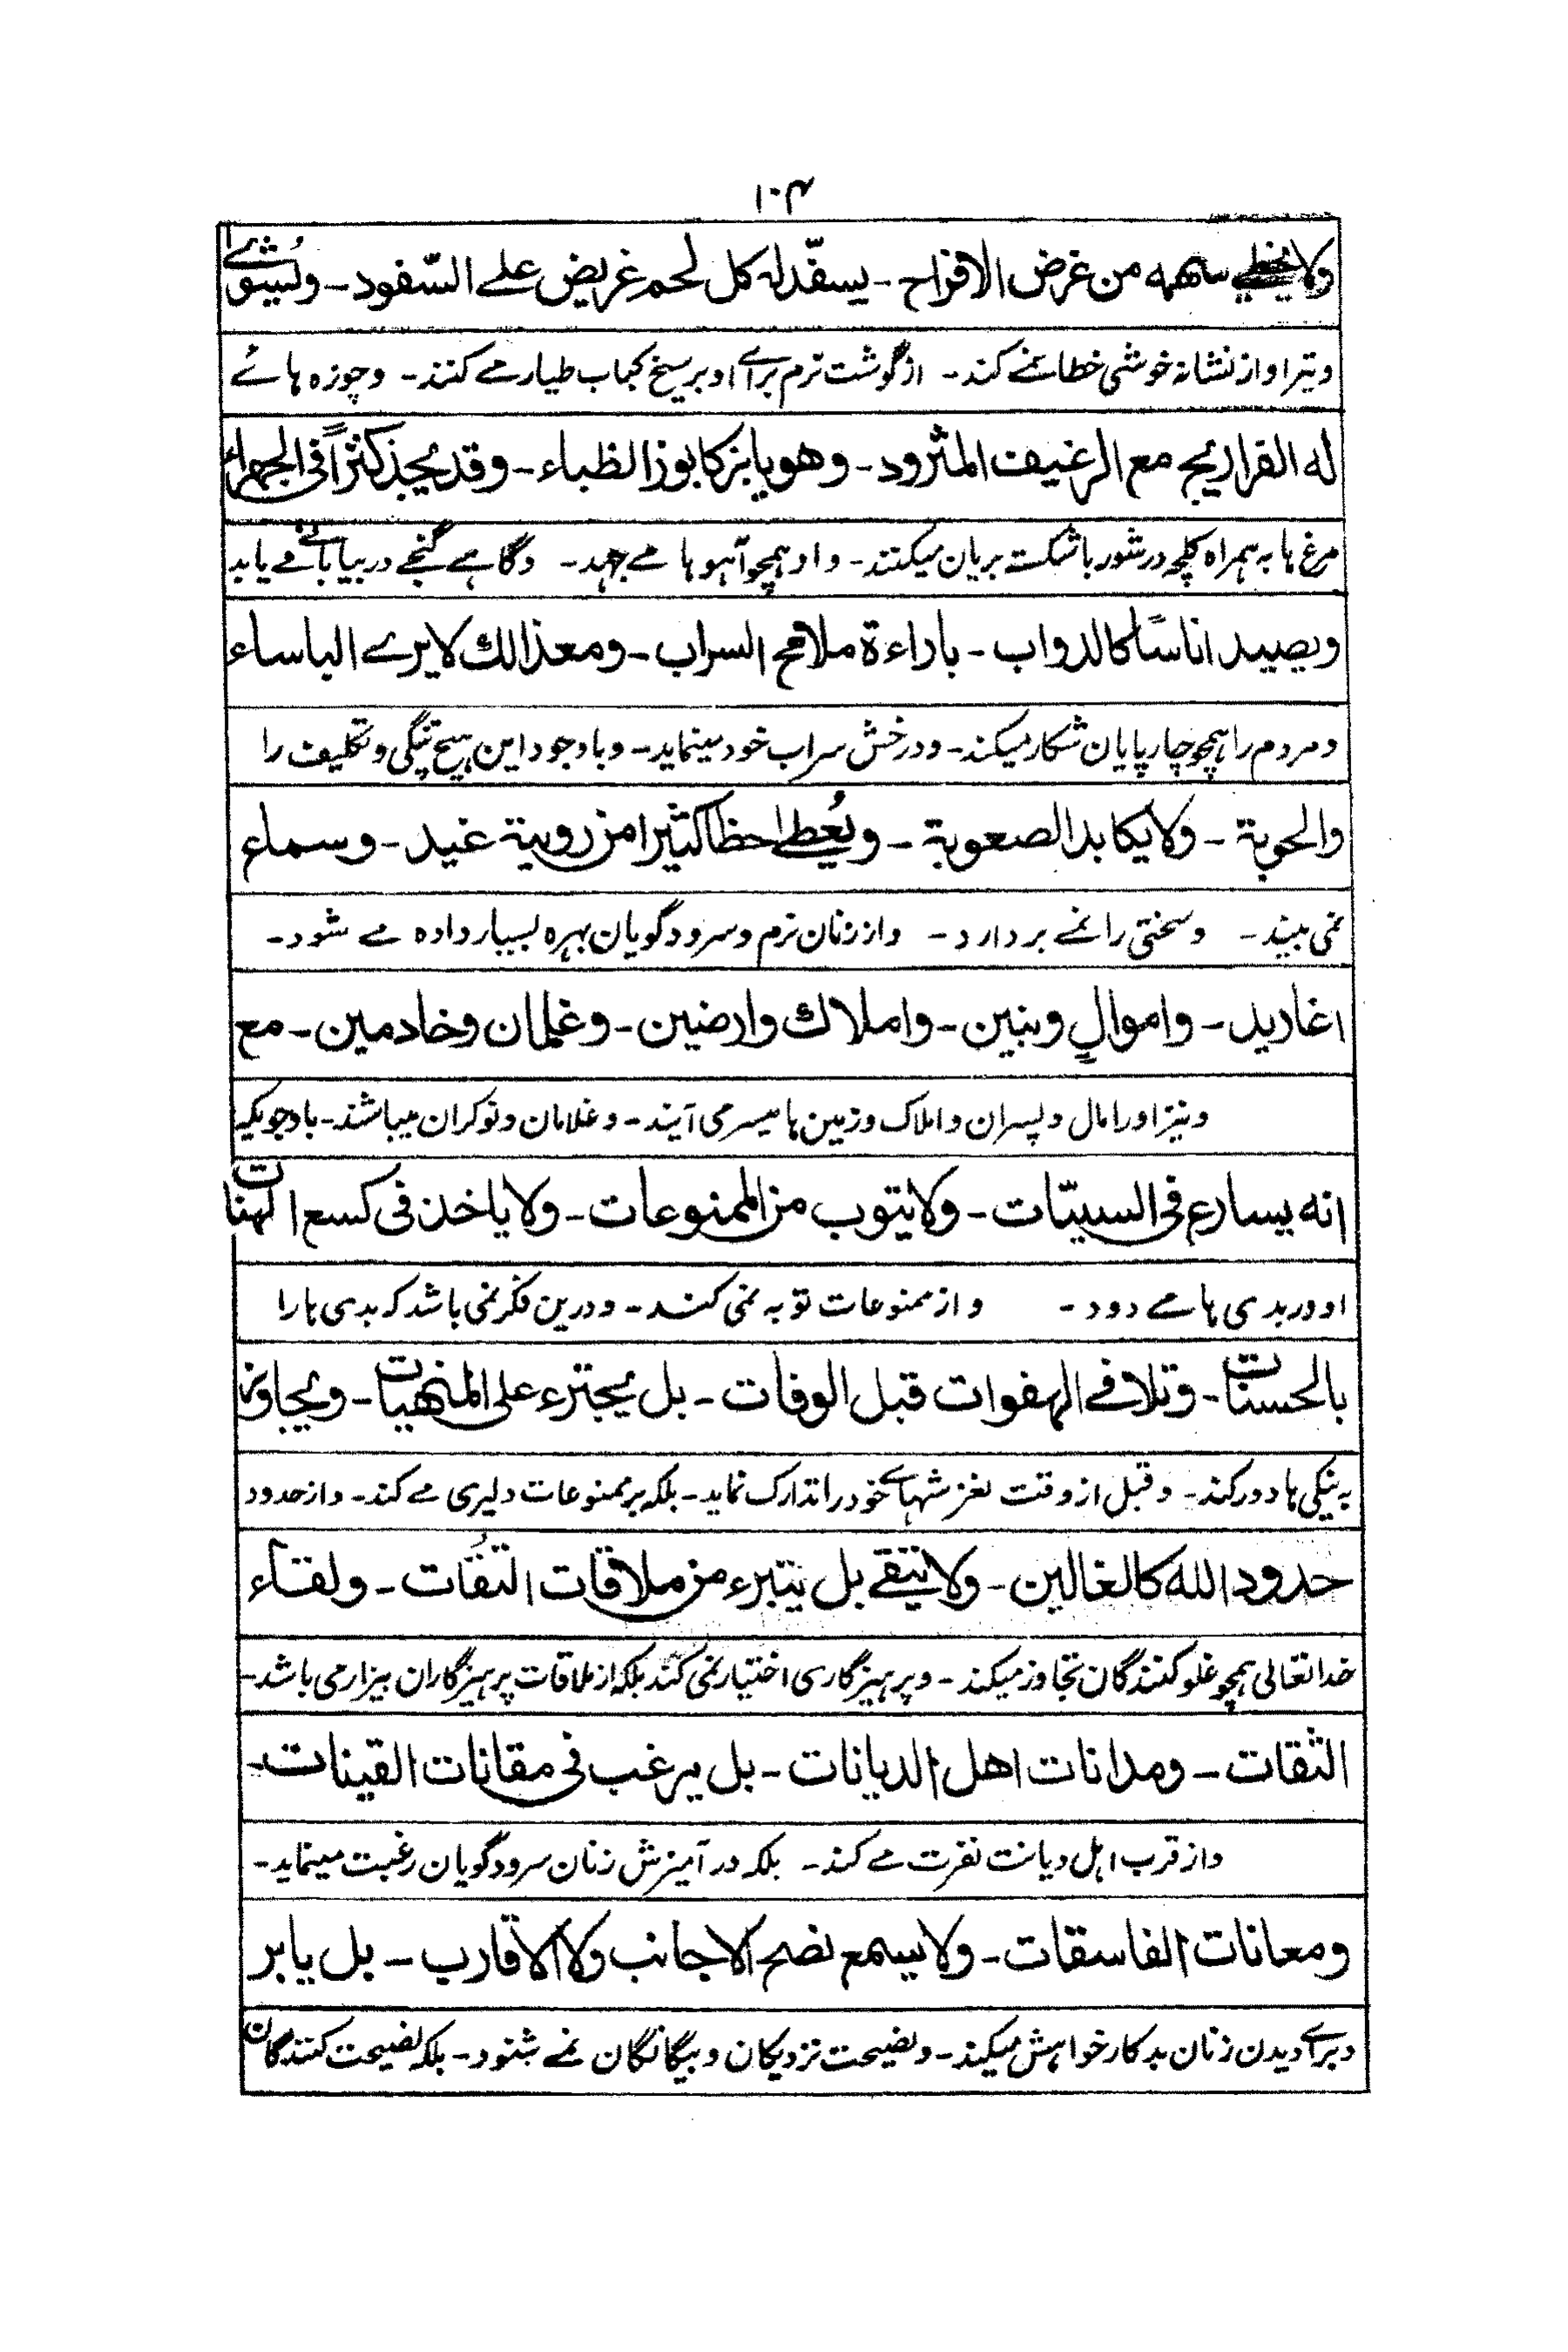 ۱۰۴
ولا يخطي سهمه من غرض الافراح - يسفّد له كل لحم غريض على السّفود - ويُشوٰى
وتیر او از نشانہ خوشی خطا نمے کند - از گوشت نرم برائے او بر سیخ کباب طیار مے کنند - وچوزہ ہائے
له الفراريج مع الرغيف المثرود - وهو يابز كابوز الظباء - وقد يجد كنزاً فى الجهراء
مرغ ہا بہ ہمراہ کلچہ در شوربا شکستہ بریان میکنند - واو ہمچو آہو ہا مے جہد - وگاہے گنجے در بیابانے مے یابد
ويصيد اناسًا كالدواب - باراءة ملامح السراب - ومع ذالك لا يرى الباساء
ومردم را ہمچو چارپایان شکار میکند - ودرخش سراب خود مینماید - وباوجود این ہیچ تنگی وتکلیف را
والحوبة - ولا يكابد الصعوبة - ويُعطى حظا كثيرا من روية غيد - وسماع
نمی بیند - وسختی را نمے بردارد - واز زنان نرم وسرودگویان بہرہ بسیار دادہ مے شود -
اغاريد - واموالٍ وبنين - واملاك وارضين - وغلمان وخادمين - مع
ونیز اورا مال وپسران واملاک وزمین ہا میسر می آیند - وغلامان ونوکران میباشند - باوجودیکہ
انه يسارع فى السيّات - ولا يتوب من الممنوعات - ولا ياخذ فى كسع الهنات
او در بدی ہا مے دود - واز ممنوعات توبہ نمی کند - ودرین فکر نمی باشد کہ بدی ہا را
بالحسنات - وتلافے الهفوات قبل الوفات - بل يجترء على المنهيات - ويجاوز
بہ نیکی ہا دور کند - وقبل از وقت لغزشہائے خود را تدارک نماید - بلکہ بر ممنوعات دلیری مے کند - واز حدود
حدود الله كالغالين - ولا يتقے بل يتبرء من ملاقات التقات - ولقاء
خدا تعالی ہمچو غلو کنندگان تجاوز میکند - وپرہیزگاری اختیار نمی کند بلکہ از ملاقات پرہیزگاران بیزار می باشد -
الثقات - ومدانات اهل الديانات - بل يرغب فى مقانات القينات -
واز قرب اہل دیانت نفرت مے کند - بلکہ در آمیزش زنان سرودگویان رغبت مینماید -
ومعانات الفاسقات - ولا يسمع نصح الاجانب ولا الاقارب - بل يابر
وبرائے دیدن زنان بدکار خواہش میکند - ونصیحت نزدیکان وبیگانگان نمے شنود - بلکہ نصیحت کنندگان